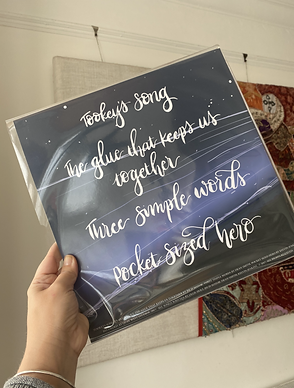 Tookey's song
The glue that keeps us
together
Three simple words
Pocket sized hero